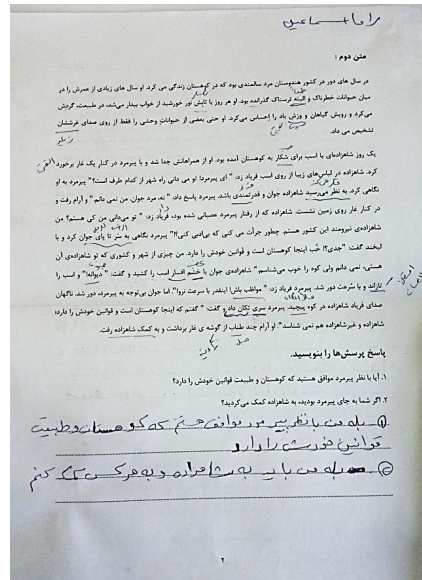 راما اسماعیل
متن دوم :
در سال های دور در کشور هندوستان مرد سالمندی بود که در کوهستان زندگی می کرد. او سال های زیادی از عمرش را در
میان حیوانات خطرناک و البته ترسناک گذرانده بود. او هر روز با تابش نور خورشید از خواب بیدار می‌شد، در طبیعت، گردش
می‌کرد و رویش گیاهان و وزش باد را احساس می‌کرد. او حتی بعضی از حیوانات وحشی را فقط از روی صدای غرششان
تشخیص می داد.
یک روز شاهزاده‌ای با اسب برای شکار به کوهستان آمده بود. او از همراهانش جدا شد و با پیرمرد در کنار یک غار برخورد
کرد. شاهزاده در لباس‌های زیبا از روی اسب فریاد زد: "ای پیرمرد! تو می دانی راه شهر از کدام طرف است؟" پیرمرد به او
نگاهی کرد. به نظر می‌رسید شاهزاده جوان و قدرتمندی باشد. پیرمرد پاسخ داد: "نه، مرد جوان، من نمی دانم." و آرام رفت و
در کنار غار روی زمین نشست. شاهزاده که از رفتار پیرمرد عصبانی شده بود، فریاد زد: " تو می‌دانی من کی هستم؟ من
شاهزاده‌ی نیرومند این کشور هستم چطور جرأت می کنی که بی‌ادبی کنی؟!" پیرمرد نگاهی به سَر تا پای جوان کرد و با
لبخند گفت: "جدی؟! خُب اینجا کوهستان است و قوانین خودش را دارد. من چیزی از شهر و کشوری که تو شاهزاده‌ی آن
هستی، نمی دانم ولی کوه را خوب می‌شناسم." شاهزاده‌ی جوان با خشم افسار اسب را کشید و گفت: "دیوانه!" و اسب را
تازاند و با سُرعت دور شد. پیرمرد فریاد زد: "مواظب باش! اینقدر با سرعت نرو!". اما جوان بی‌توجه به پیرمرد دور شد. ناگهان
صدای فریاد شاهزاده در کوه پیچید. پیرمرد سری تکان داد و گفت: "گفتم که اینجا کوهستان است و قوانین خودش را دارد؛
شاهزاده و غیرشاهزاده هم نمی شناسد". او آرام چند طناب از گوشه ی غار برداشت و به کمک شاهزاده رفت.
پاسخ پرسش‌ها را بنویسید.
۱. آیا با نظر پیرمرد موافق هستید که کوهستان و طبیعت قوانین خودش را دارد؟
۲. اگر شما به جای پیرمرد بودید، به شاهزاده کمک می‌کردید؟
① بله من با نظر پیر مرد موافق هستم که کوهستان و طبیعت
قوانین خودش را دارد
② بله من باید به شاهزاده و به هر کس کمک کنم
۲